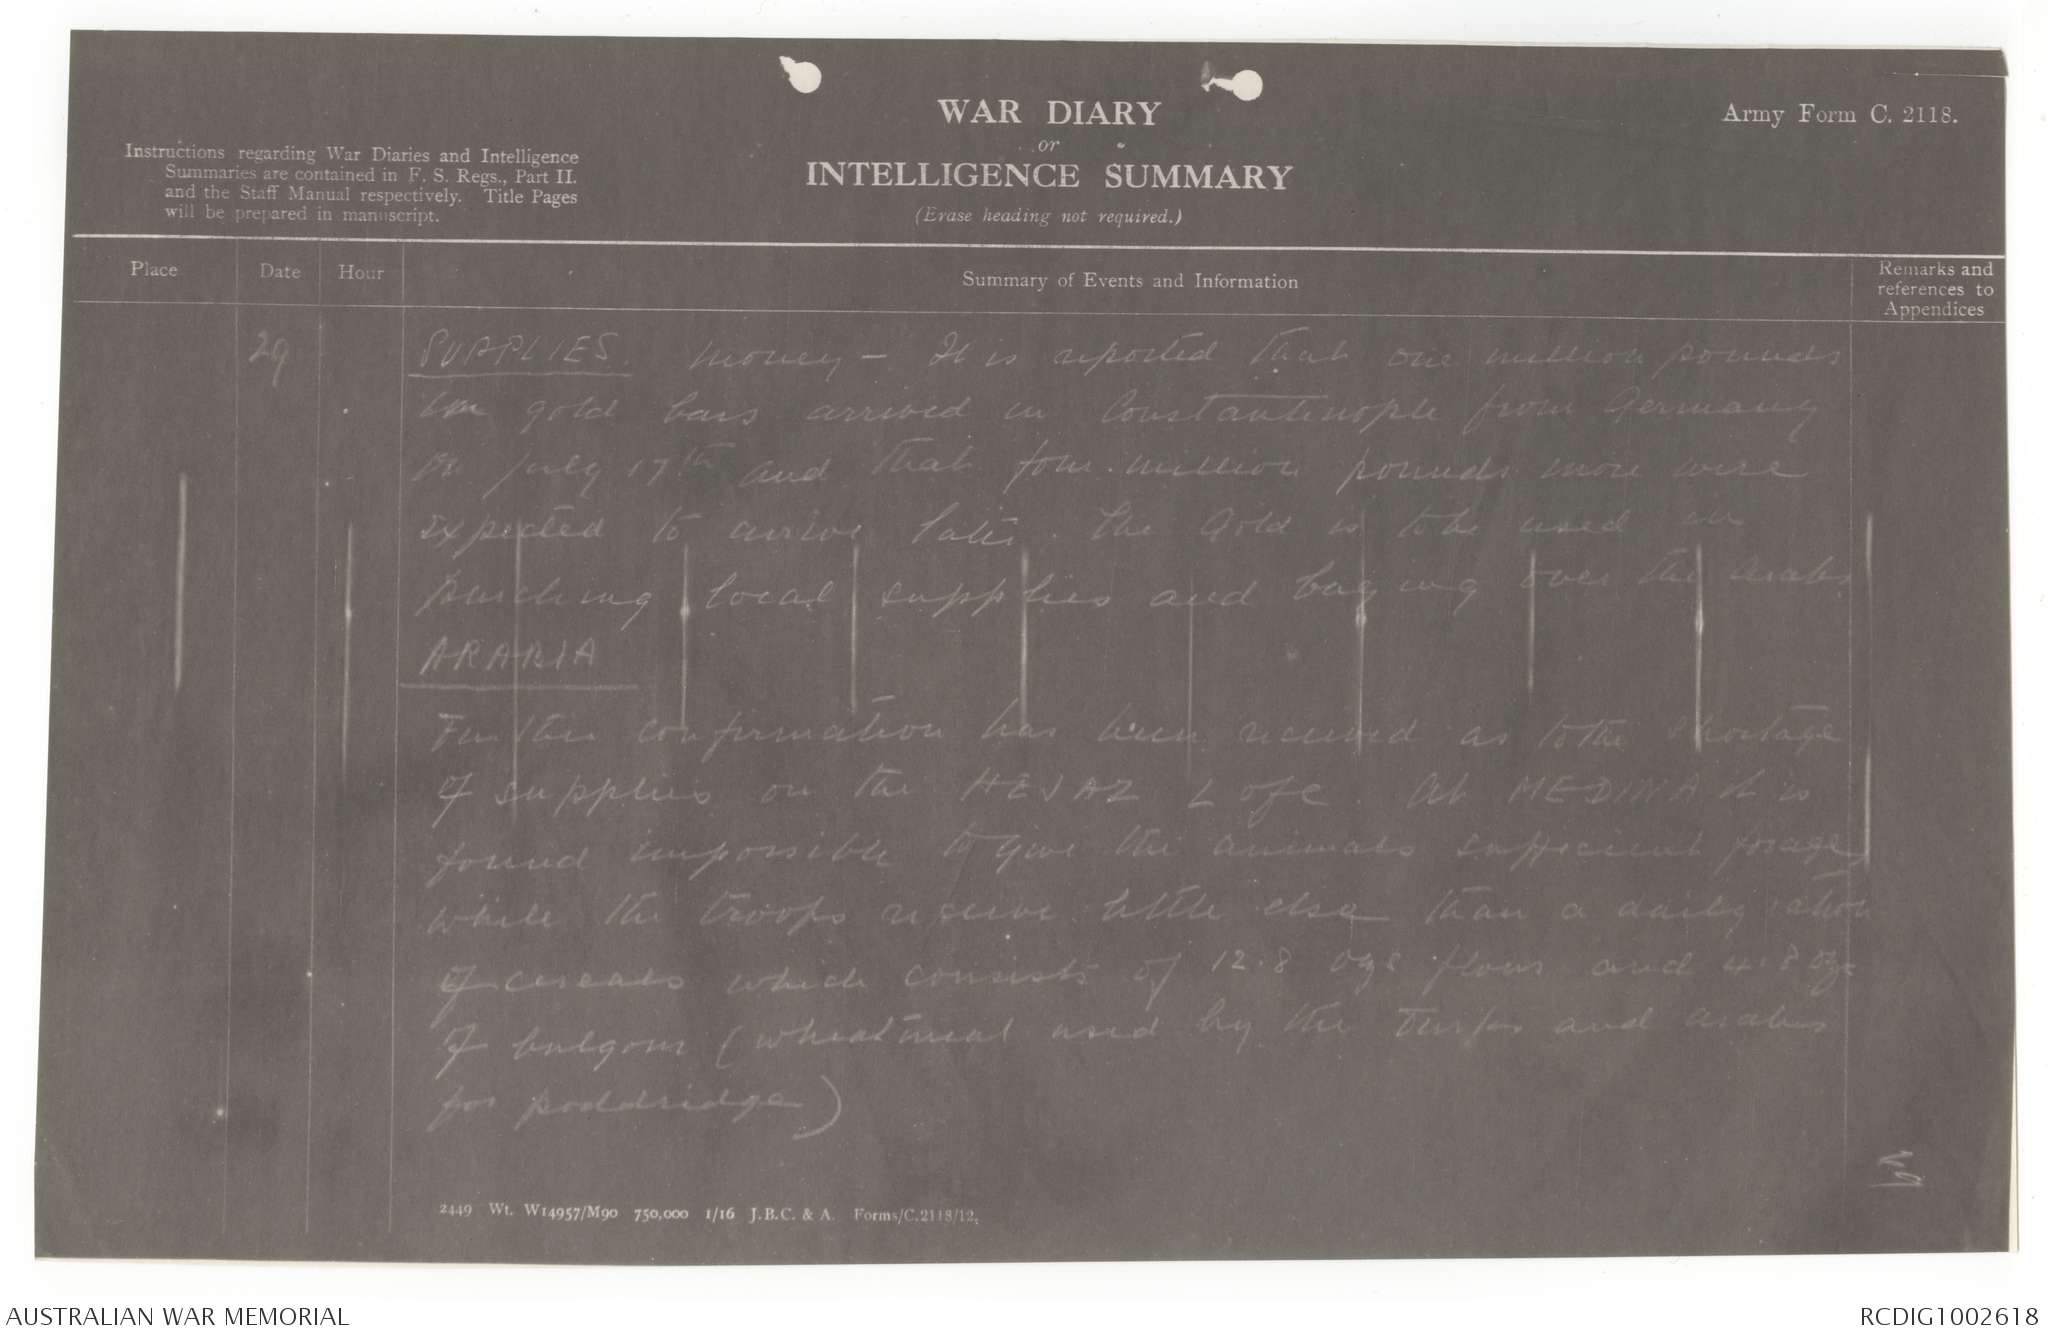 WAR DIARY
or
INTELLIGENCE SUMMARY
(Erase heading not required.)
Army Form C. 2118.
Instructions regarding War Diaries and Intelligence
Summaries are contained in F. S. Regs., Part II.
and the Staff Manual respectively. Title Pages
will be prepared in manuscript.
Place
Date
Hour
Summary of Events and Information
Remarks and
references to
Appendices
29
SUPPLIES. Money – It is reported that one million pounds
in gold bars arrived in Constantinople from Germany
on July 17th and that four million pounds more were
expected to arrive later. The Gold is to be used in
purching local supplies and buying over the Arabs.
ARABIA
Further confirmation has been received as to the shortage
of supplies on the HEJAZ L of C. At MEDINA it is
found impossible to give the animals sufficient forage,
while the troops receive little else than a daily ration
of cereals which consists of 12.8 ozs flour and 4.8 ozs
of bulgour (wheatmeal used by the Turks and Arabs
for poddridge)
2449 Wt. W14957/M90 750,000 1/16 J.B.C. & A. Forms/C.2118/12.
AUSTRALIAN WAR MEMORIAL
RCDIG1002618